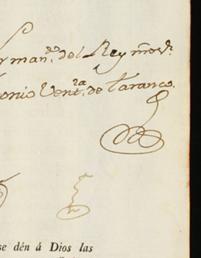 r man.º del Rey ñro s.r
onio Vent.ra de Taranco.
se dén á Dios las